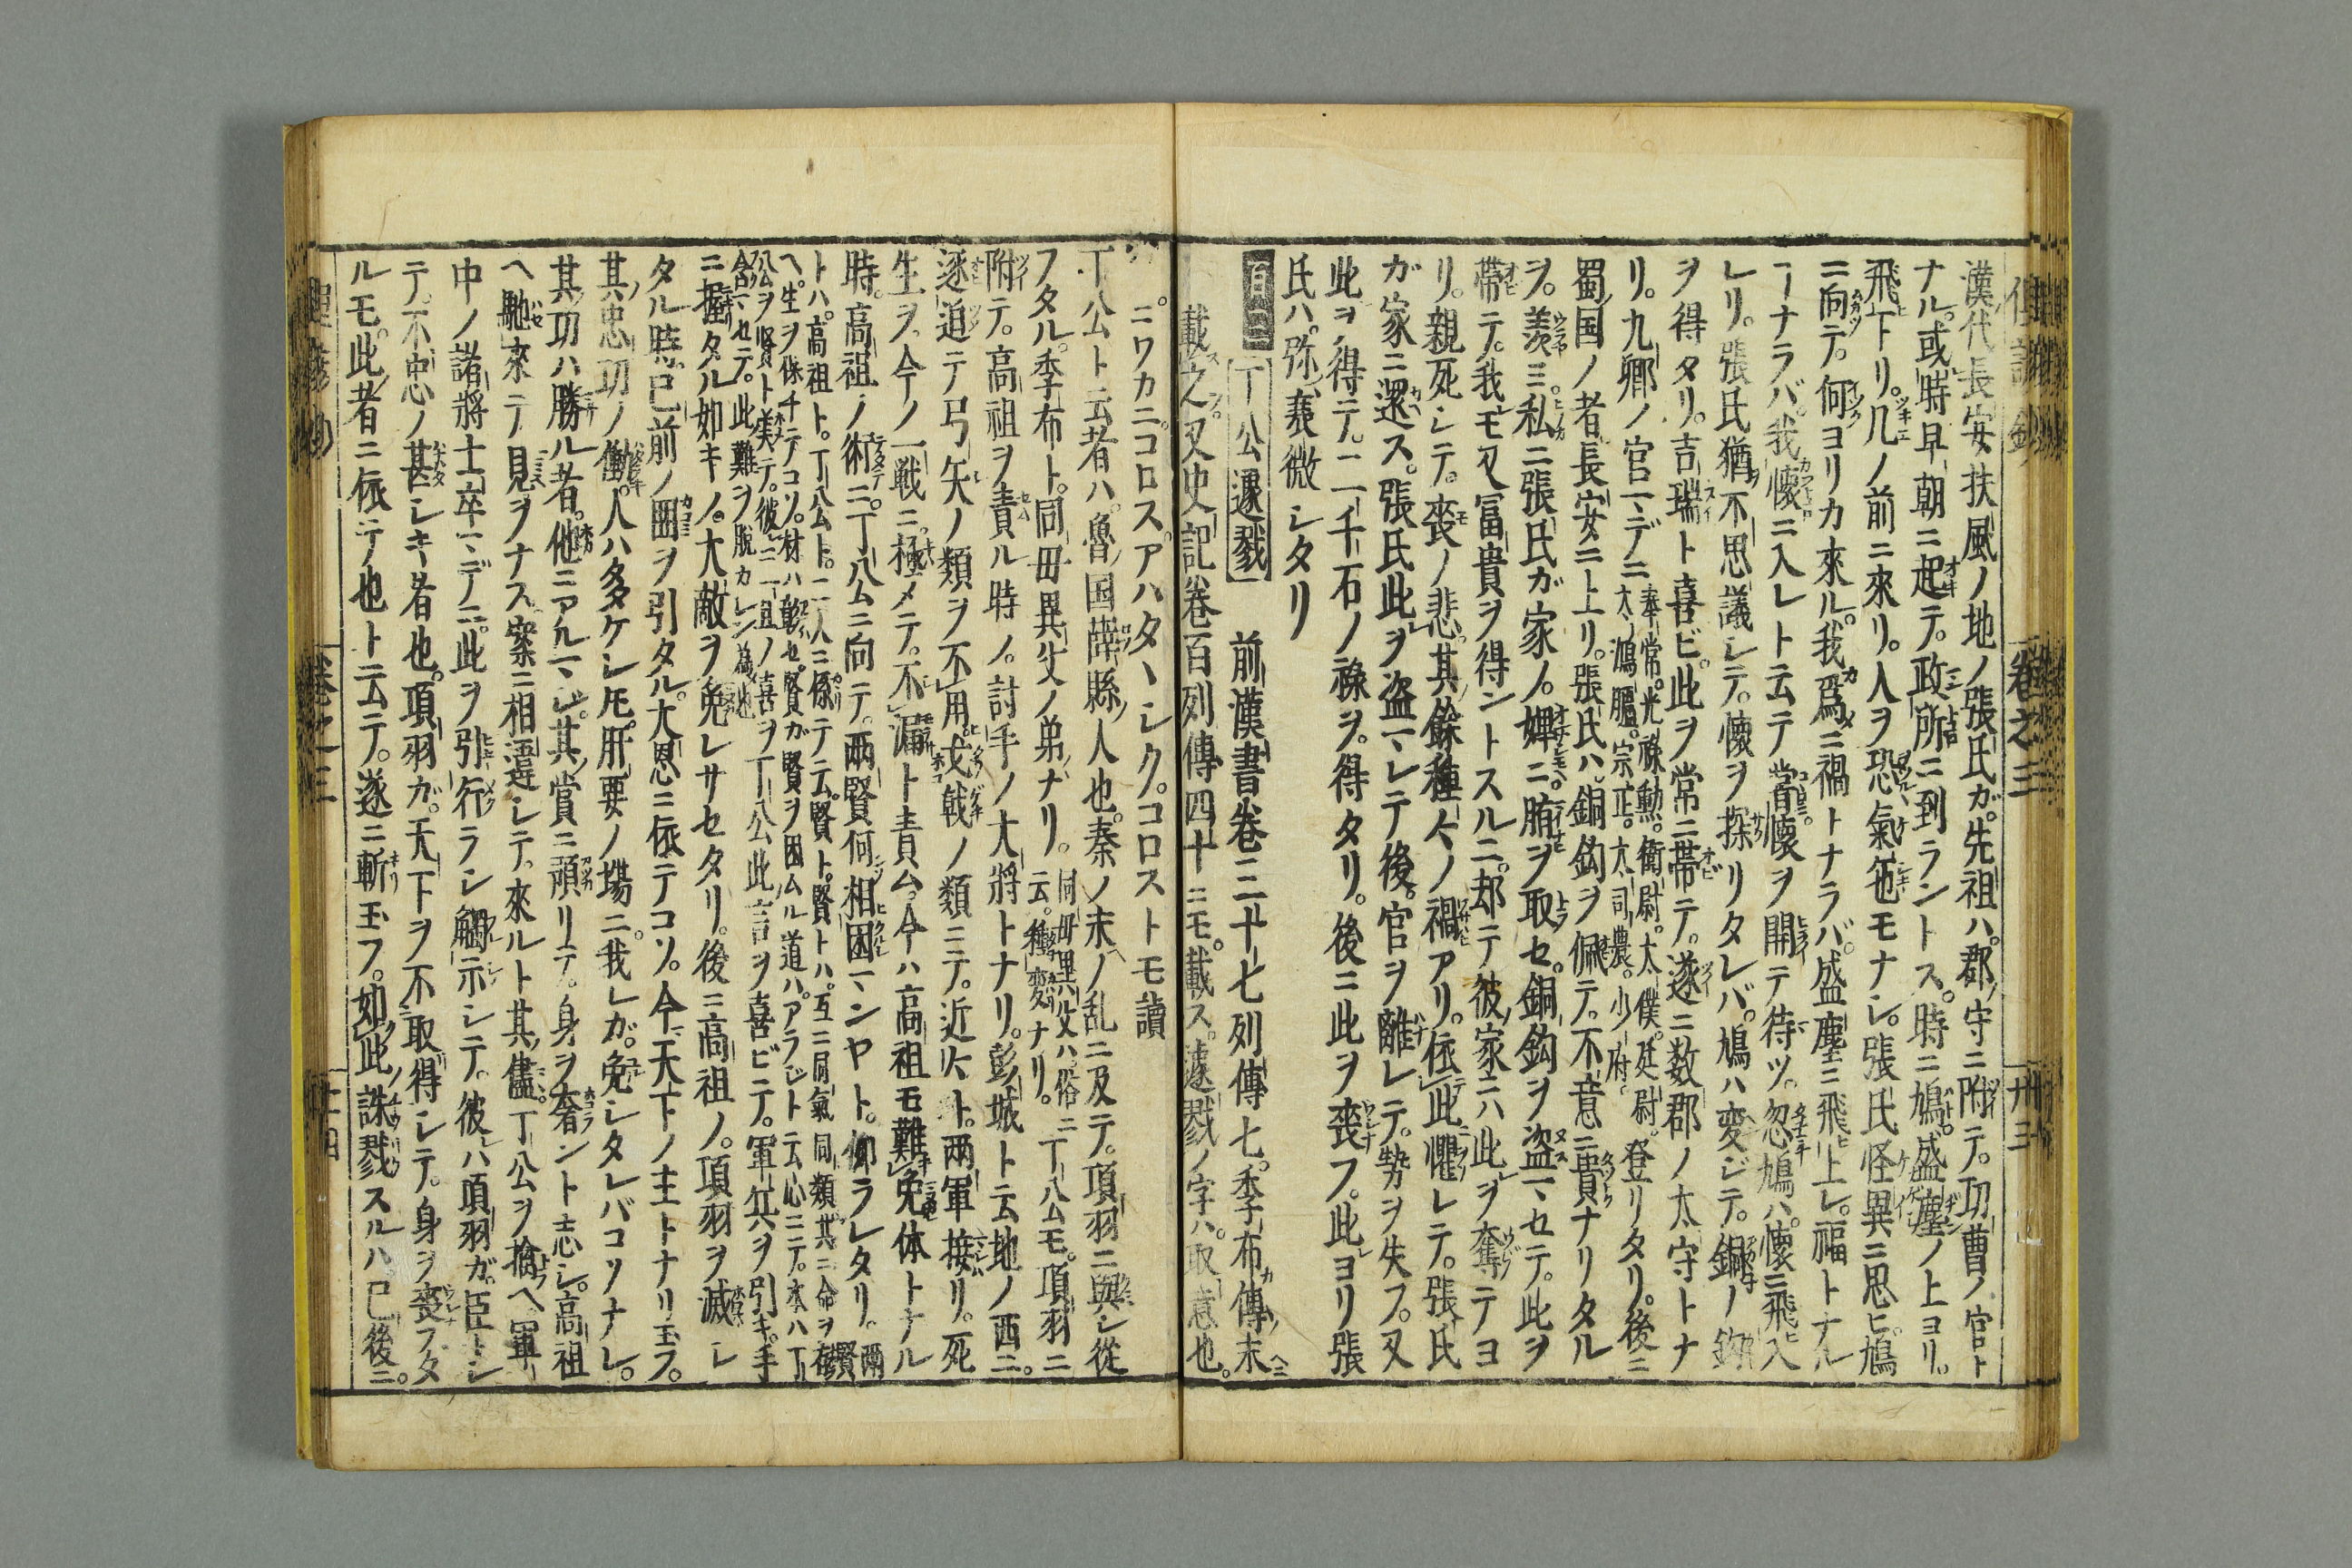 漢代長安扶風ノ地ノ張氏ガ先祖ハ。郡ノ守ニ附テ。功曹ノ官ト
ナル。或時早朝ニ起テ。政所ニ到ラントス。時ニ鳩。盛塵ノ上ヨリ。
飛下リ。几ノ前ニ來リ。人ヲ恐氣色モナシ。張氏怪異ニ思ヒ。鳩
ニ向テ。何ヨリカ來ル。我爲ニ禍トナラバ。盛塵ニ飛上レ。福トナル
ヿナラバ。我懷ニ入レト云テ當懷ヲ開テ待ツ。忽鳩ハ。懷ニ飛入
レリ。張氏猶不思議シテ。懷ヲ探リタレバ。鳩ハ変ジテ。銅ノ鉤
ヲ得タリ。吉瑞ト喜ビ。此ヲ常ニ帶テ。遂ニ数郡ノ太守トナ
リ。九卿ノ官マデニ 奉常。光祿勲。衛尉。太僕。廷尉。太鴻臚。宗正。大司農。少府。 登リタリ。後ニ
蜀国ノ者長安ニ上リ。張氏ハ銅鈎ヲ佩テ。不意ニ貴ナリタル
ヲ。羨ミ。私ニ張氏ガ家ノ。婢ニ。賄ヲ取セ。銅鈎ヲ盜マセテ。此ヲ
帶テ。我モ又冨貴ヲ得ントスルニ。却テ彼家ニハ此ヲ奪テヨ
リ。親死シテ。喪ノ悲。其餘種々ノ禍アリ。依此懼レテ。張氏
ガ家ニ還ス。張氏此ヲ盜マレテ後。官ヲ離レテ。勢ヲ失フ。又
此ヲ得テ。二千石ノ祿ヲ。得タリ。後ニ此ヲ喪フ。此ヨリ張
氏ハ。弥衰微シタリ
丁公遽戮 前漢書卷三十七列傳七。季布傳ノ末ニ
載之又史記卷百列傳四十ニモ。載ス。遽戮ノ字ハ。取意也。
ニワカニコロス。アハタヽシク。コロストモ讀
丁公ト云者ハ。魯国薛縣ノ人也。秦ノ末ノ乱ニ及テ。項羽ニ與シ從
フタル。季布ト。同毋異父ノ弟ナリ。 同毋異父ハ俗ニ云。種変ナリ。 丁公モ。項羽ニ
附テ。高祖ヲ責ル時ノ。討手ノ大將トナリ。彭城ト云地ノ西ニ。
逐迫テ弓矢ノ類ヲ不用。戈戟ノ類ニテ。近々ト。兩軍接リ。死
生ヲ。今ノ一戦ニ。極メテ。不漏ト責ム。今ハ高祖モ難免体トナル
時。高祖ノ術ニ。丁公ニ向テ。兩賢何相困マンヤト。仰ラレタリ。 兩賢
トハ。高祖ト。丁公ト。二人ニ係テ云。賢ト賢トハ。互ニ同氣同類。其ニ命ヲ存
ヘ。生ヲ保チテコソ。材ハ敢セ。賢ガ賢ヲ困ムル道ハ。アラジト云心ニテ。本ハ丁
公ヲ賢ト美テ。彼ニ一旦ノ喜ヲ 丁公此言ヲ喜ビテ。軍兵ヲ引キ。手
含マセテ。此難ヲ脱カレン為也
ニ握タル如キノ。大敵ヲ免レサセタリ。後ニ高祖ノ。項羽ヲ滅シ
タル時。已前ノ囲ヲ引タル。大恩ニ依テコソ。今天下ノ主トナリ玉フ。
其忠功ノ働。人ハ多ケレ𪜈。肝要ノ塲ニ。我レガ。免シタレバコソナレ。
其功ハ勝ル者。他ニアルマシ。其賞ニ預リテ。身ヲ奢ント志シ。高祖
ヘ馳來テ見ヲナス案ニ相違シテ。來ルト其儘。丁公ヲ擒ヘ。軍
中ノ諸將士卒マデニ。此ヲ引行ラシ觸示シテ。彼ハ項羽ガ。臣トシ
テ。不忠ノ甚シキ者也。項羽ガ。天下ヲ不取得シテ。身ヲ喪フタ
ルモ。此者ニ依テ也ト云テ。遂ニ斬玉フ。如此誅戮スルハ。已後ニ。
卷之三
卅三